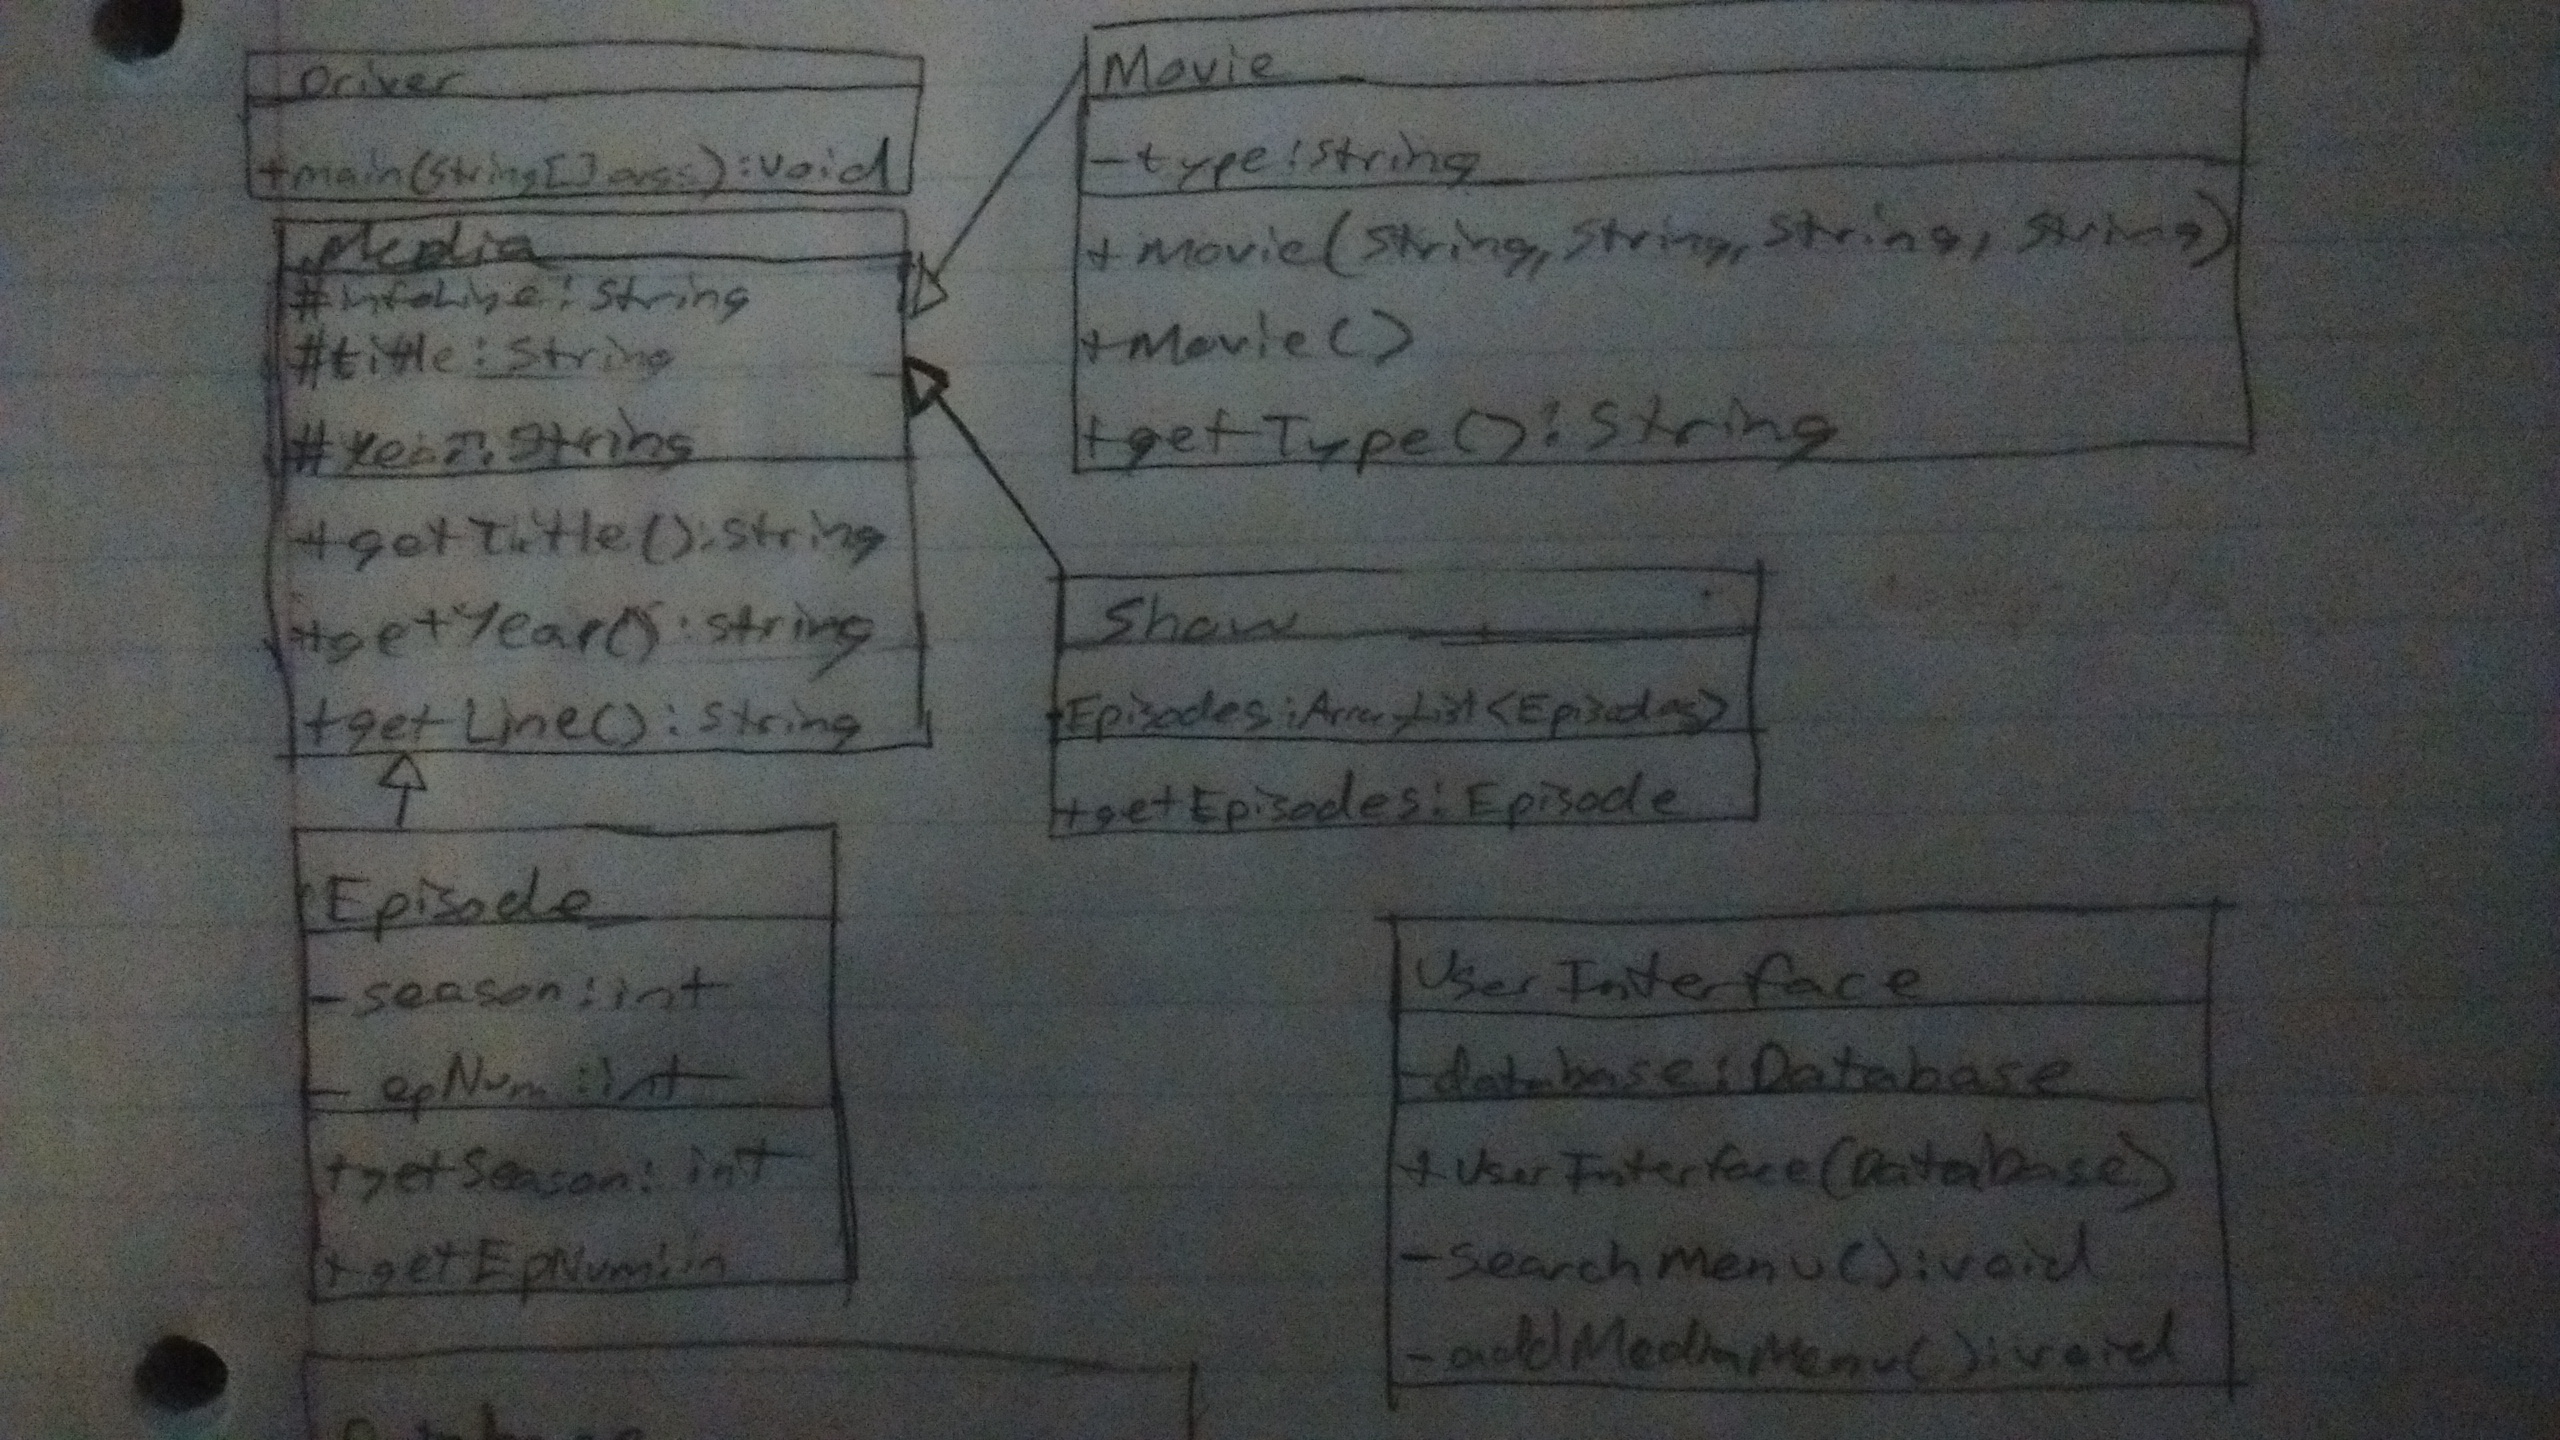 Driver
+main(String[] args):void
Media
#infoLine:String
#title:String
#Year:String
+getTitle():String
+getYear():String
+getLine():String
Episode
-season:int
-epNum:int
+getSeason:int
+getEpNum:in
Movie
-type:String
+Movie(String,String,String,String)
+Movie()
+getType():String
Show
Episodes:ArrayList<Episodes>
+getEpisodes:Episode
UserInterface
-database:Database
+UserInterface(Database)
-searchMenu():void
-addMediaMenu():void
Database